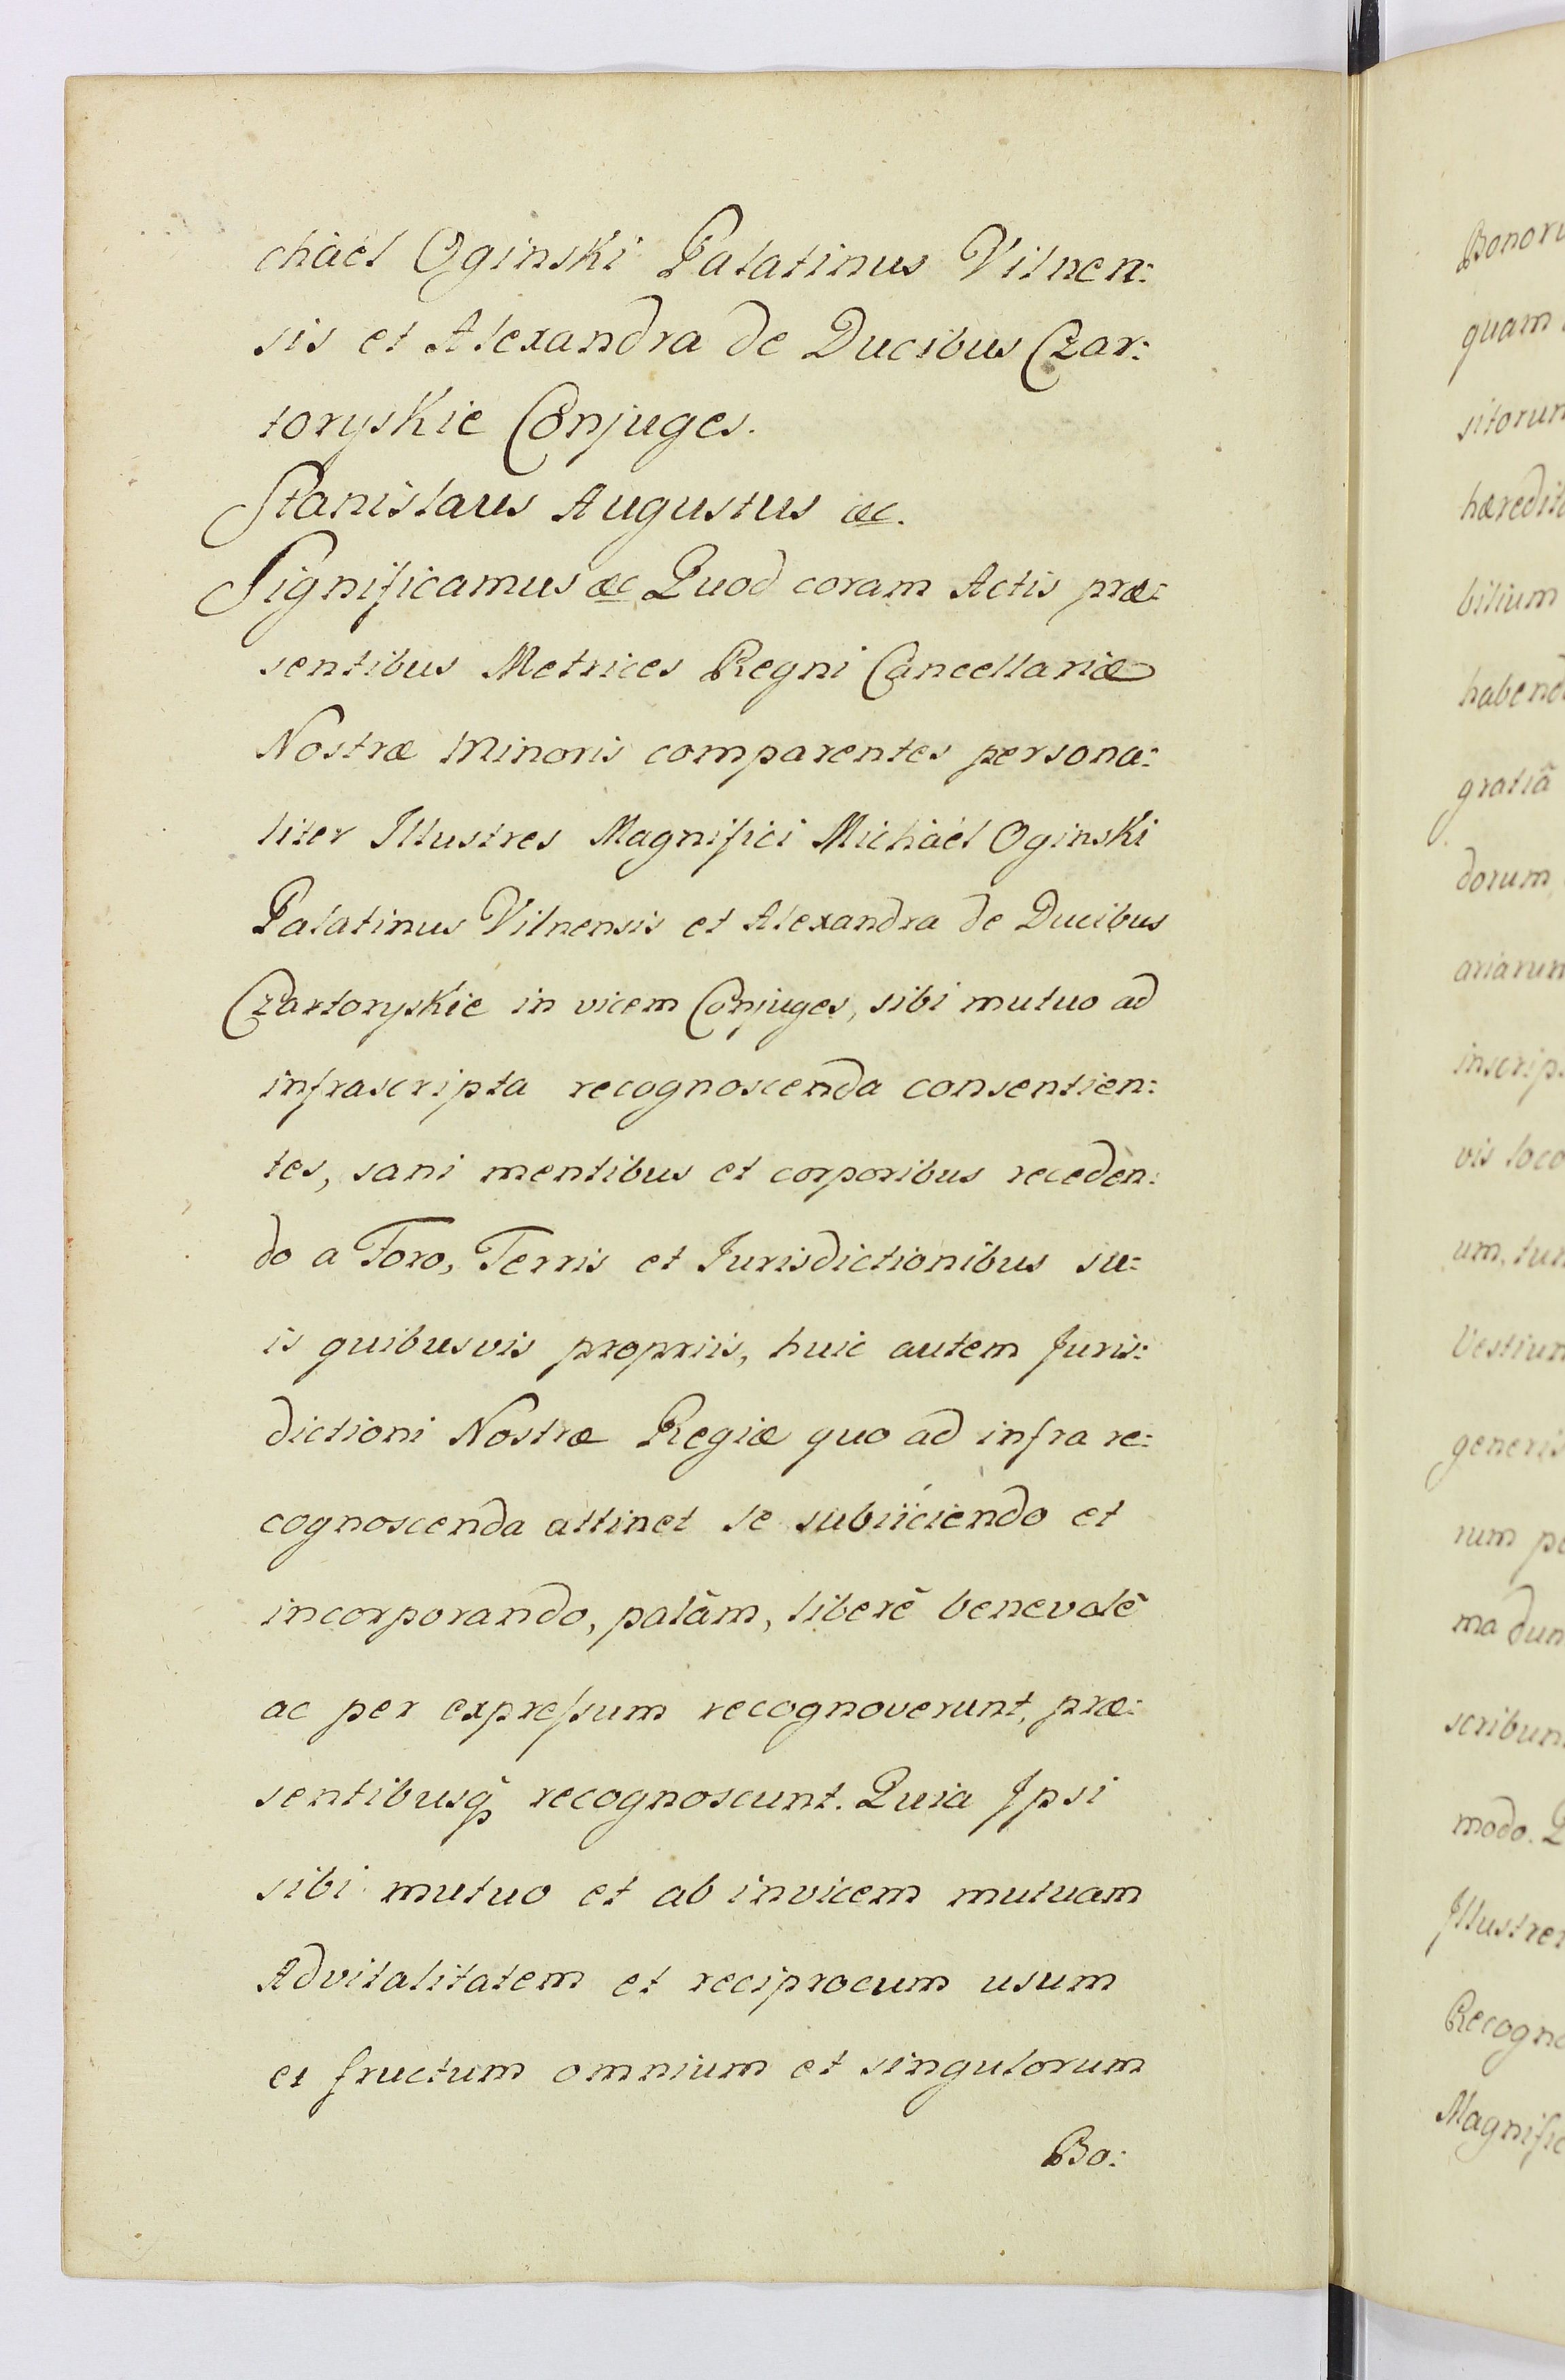 chäel Oginski Palatinus Vilnen:
sis et Alexandra de Ducibus Czar:
toryskie Conjuges.
Stanislaus Augustus &c.
Significamus &c Quod coram Actis præ:
sentibus Metrices Regni Cancellariæ
Nostræ Minoris comparentes persona:
liter Illustres Magnifici Michäel Oginski
Palatinus Vilnensis et Alexandra de Ducibus
Czartoryskie in vicem Conjuges, sibi mutuo ad
infrascripta recognoscenda consentien:
tes, sani mentibus et corporibus receden:
do a Foro, Terris et Jurisdictionibus su:
is quibusvis propriis, huic autem Juris:
dictioni Nostræ Regiæ quo ad infra re:
cognoscenda attinet se subiiciendo et
incorporando, palãm, liberẽ benevolẽ
ac per expreſsum recognoverunt, præ:
sentibusq̃ recognoscunt. Quia Ipsi
sibi mutuo et ab invicem mutuam
Advitalitatem et reciprocum usum
et fructum omnium et singulorum
Bo:
Bonoru
quam
sitorum
hæredita
bilium
habend
gratiã
dorum
ariarum
inscrip
vis loco
um, tum
Vestium
generis
rum pe
ma dun
scribun
modo. Q
Illustres
Recogno
Magnific